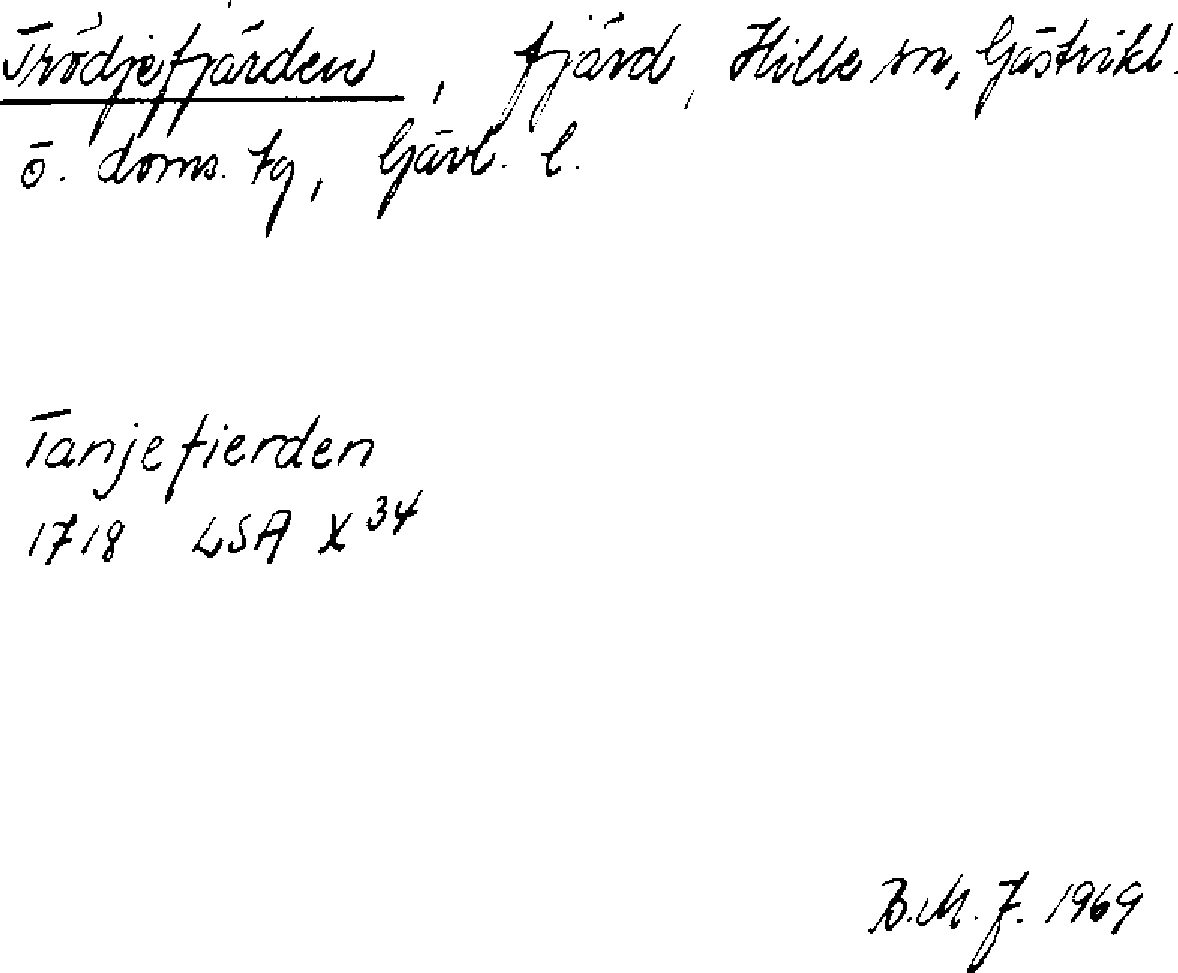 Trödjefjärden, fjärd, Hille sn, Gästrikl.
ö. doms. tg, Gävl. l.
Tanjefierden
1718 LSA X 34
B.M.J. 1969